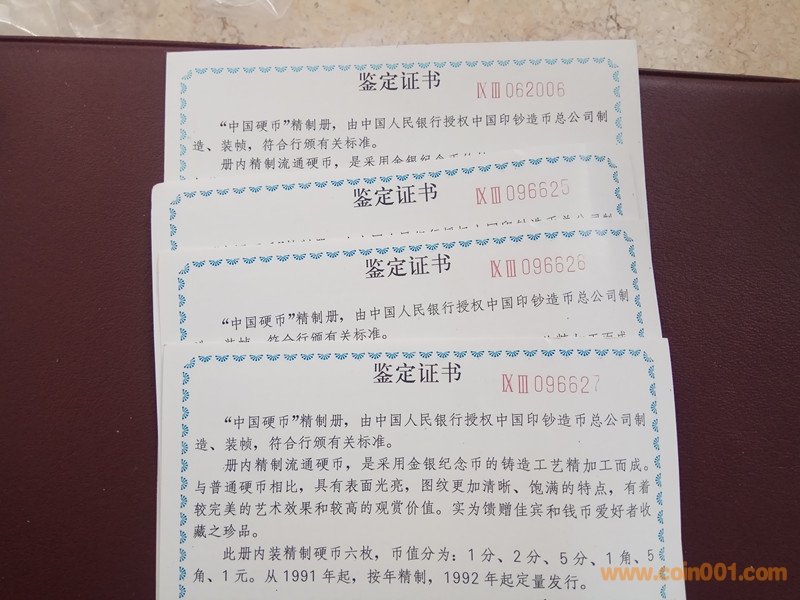 鉴定证书
ⅨⅢ062006
“中国硬币”精制册，由中国人民银行授权中国印钞造币总公司制
造、装帧，符合行颁有关标准。
册内精制流通硬币，是采用金银纪念币
鉴定证书
ⅨⅢ096625
鉴定证书
ⅨⅢ096626
“中国硬币”精制册，由中国人民银行授权中国印钞造币总公司制
造、装帧，符合行颁有关标准。
鉴定证书
ⅨⅢ096627
“中国硬币”精制册，由中国人民银行授权中国印钞造币总公司制
造、装帧，符合行颁有关标准。
册内精制流通硬币，是采用金银纪念币的铸造工艺精加工而成。
与普通硬币相比，具有表面光亮，图纹更加清晰、饱满的特点，有着
较完美的艺术效果和较高的观赏价值。实为馈赠佳宾和钱币爱好者收
藏之珍品。
此册内装精制硬币六枚，币值分为：1分、2分、5分、1角、5
角、1元。从1991年起，按年精制，1992年起定量发行。
www.coin001.com